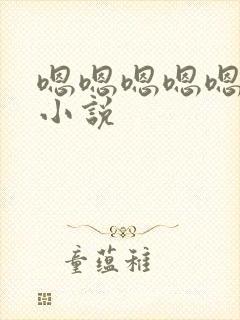 嗯嗯嗯嗯嗯
小説
童蕴稚